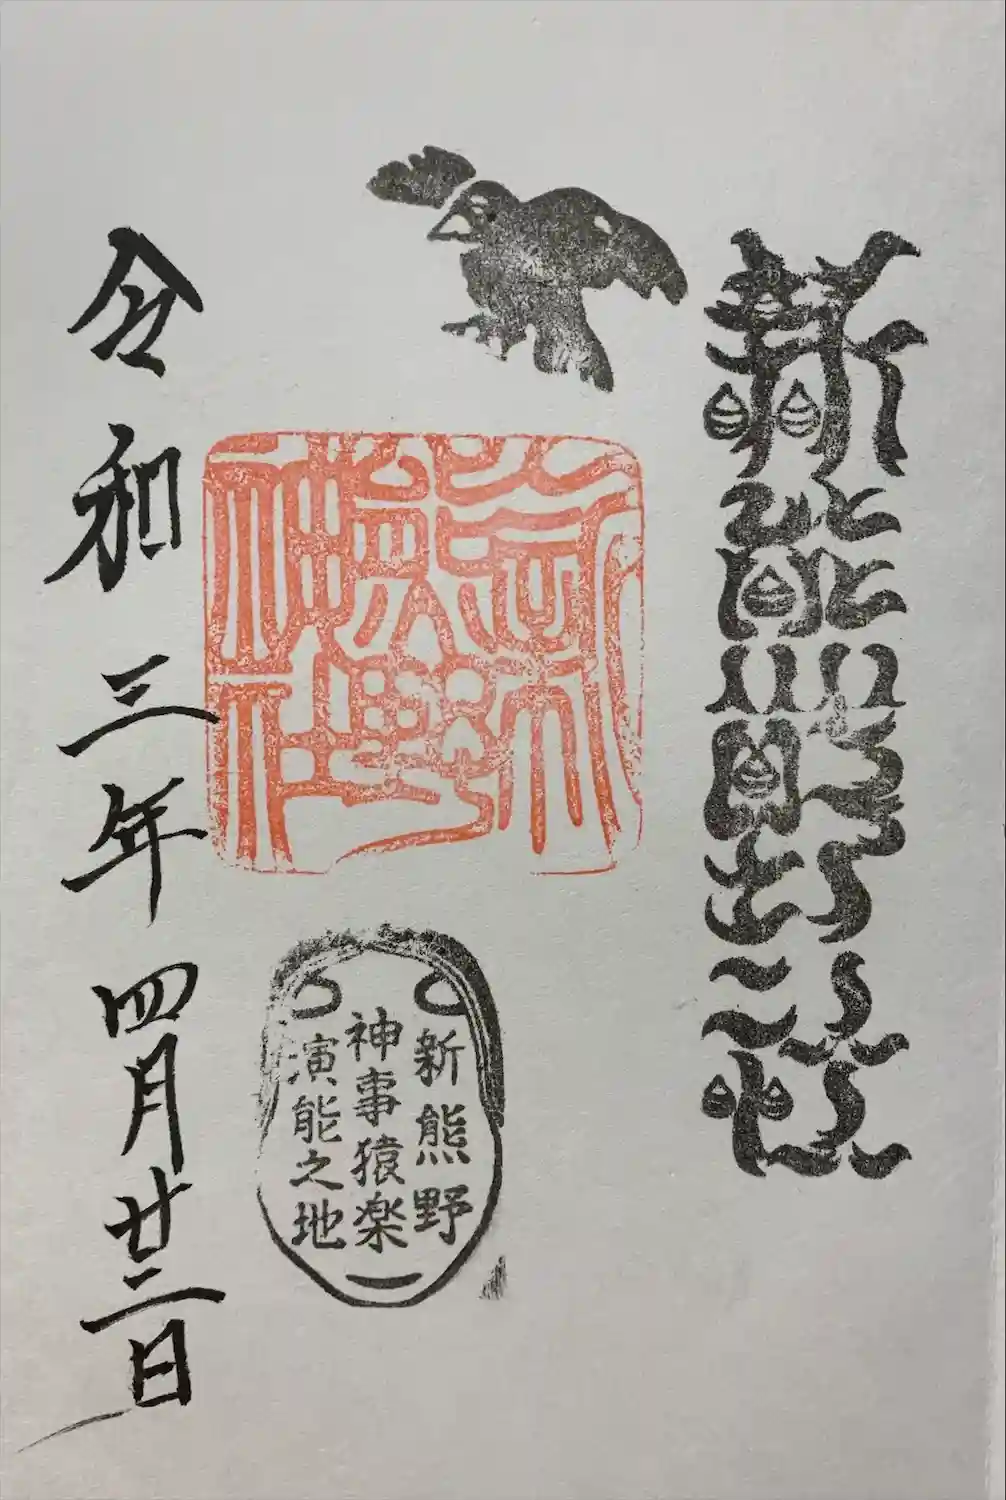 新熊野社
神社
新熊野
神事猿楽
演能之地
令和三年四月廿二日